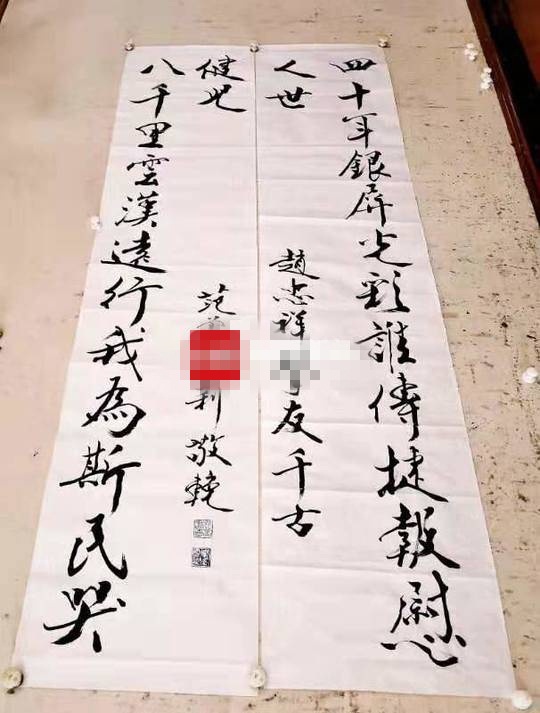 四十年銀屏光彩誰傳捷報慰
人世
趙忠祥友千古
八千里雲漢遠行我為斯民哭
健兒
范利敬輓